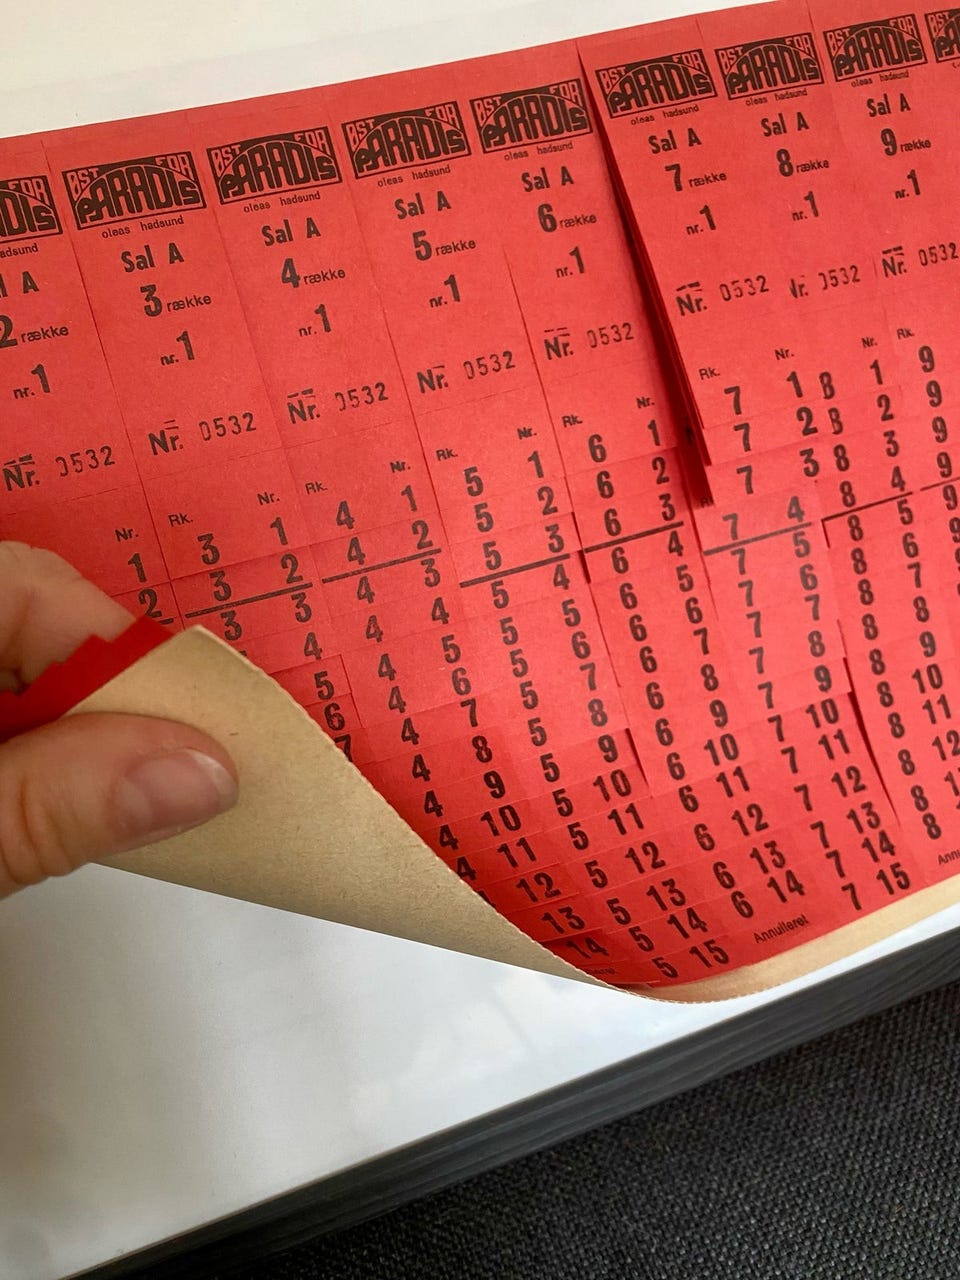 FOR
DIS
adsund
l A
2 række
nr. 1
Nr. 0532
Nr.
1
2
ØST FOR
PARADIS
oleas hadsund
Sal A
3 række
nr. 1
Nr. 0532
Rk. Nr.
3 1
3 2
3 3
4
5
6
7
ØST FOR
PARADIS
oleas hadsund
Sal A
4 række
nr. 1
Nr. 0532
Rk. Nr.
4 1
4 2
4 3
4 4
4 5
4 6
4 7
4 8
4 9
4 10
4 11
12
13
14
ØST FOR
PARADIS
oleas hadsund
Sal A
5 række
nr. 1
Nr. 0532
Rk. Nr.
5 1
5 2
5 3
5 4
5 5
5 6
5 7
5 8
5 9
5 10
5 11
5 12
5 13
5 14
5 15
ØST FOR
PARADIS
oleas hadsund
Sal A
6 række
nr. 1
Nr. 0532
Rk. Nr.
6 1
6 2
6 3
6 4
6 5
6 6
6 7
6 8
6 9
6 10
6 11
6 12
6 13
6 14
Annulleret
ØST FOR
PARADIS
oleas hadsund
Sal A
7 række
nr. 1
Nr. 0532
Rk. Nr.
7 1
7 2
7 3
7 4
7 5
7 6
7 7
7 8
7 9
7 10
7 11
7 12
7 13
7 14
7 15
ØST FOR
PARADIS
oleas hadsund
Sal A
8 række
nr. 1
Nr. 0532
Nr.
8 1
8 2
8 3
8 4
8 5
8 6
8 7
8 8
8 9
8 10
8 11
8 12
8
8
Annu
ØST FOR
PARADIS
oleas hadsund
Sal A
9 række
nr. 1
Nr. 0532
Rk.
9
9
9
9
9
9